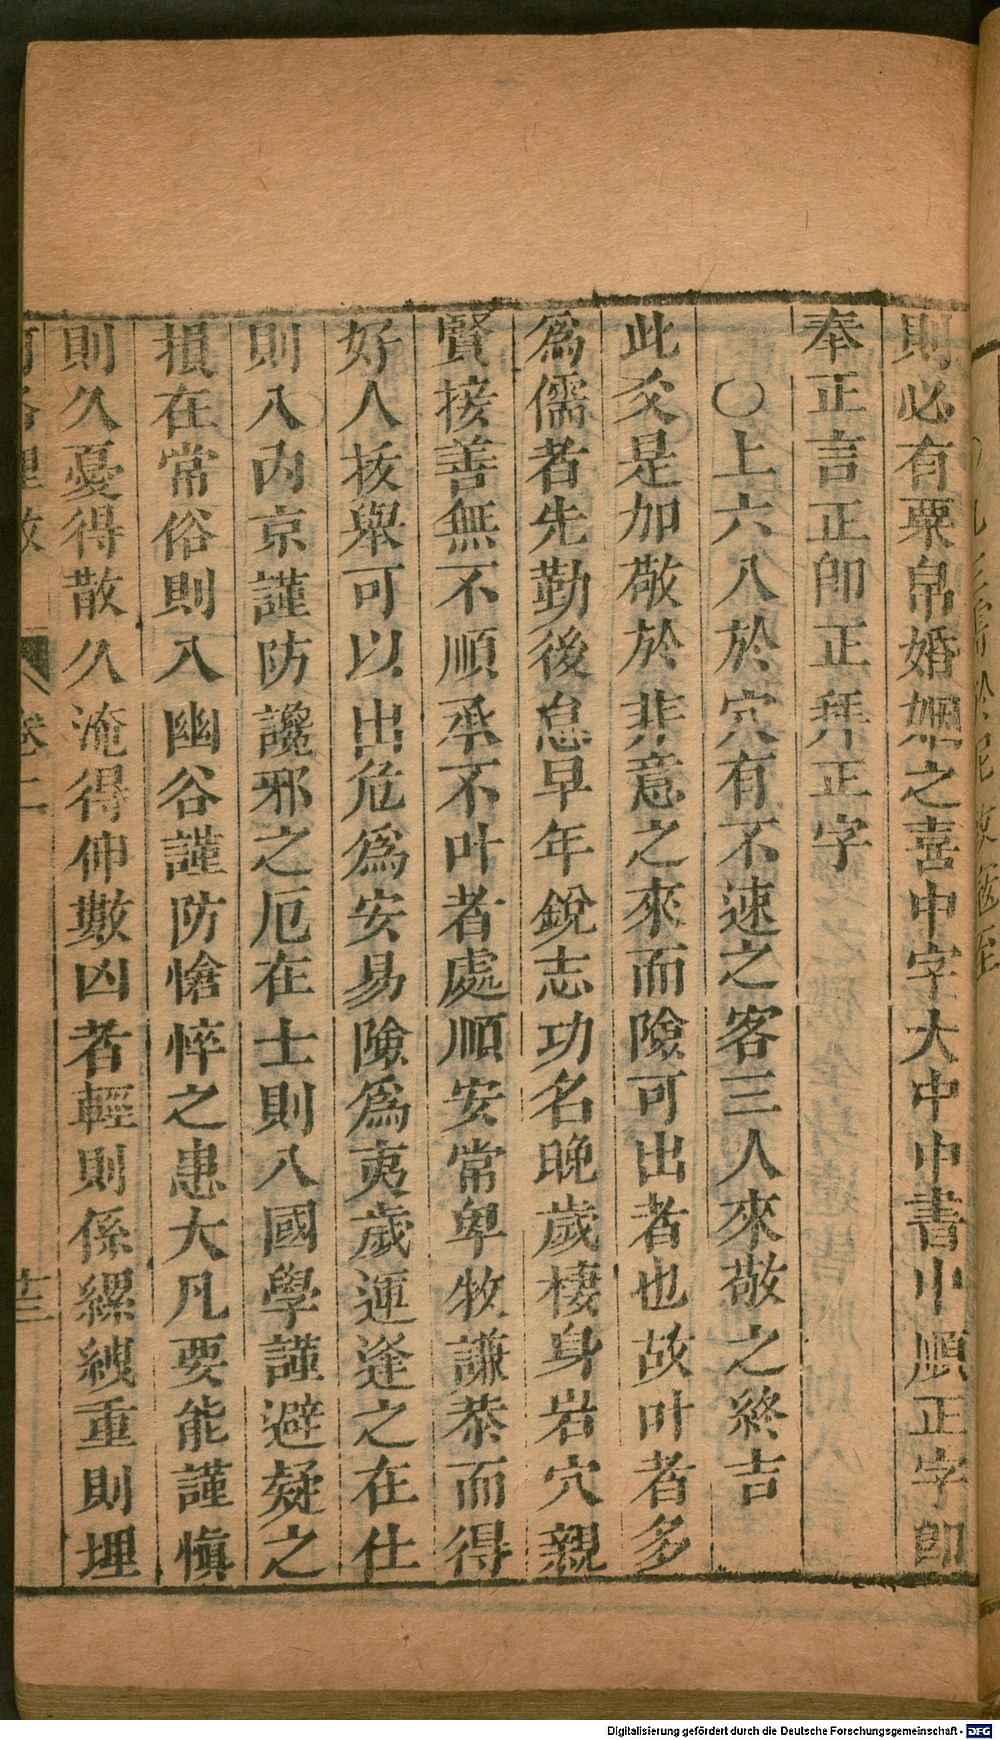 則必有粟帛婚姻之喜中字大中中書中順正字即
奉正言正郎正拜正字
〇上六入於穴有不速之客三人來敬之終吉
此爻是加敬於非意之來而險可出者也故叶者多
為儒者先勤後怠早年銳志功名晚歲棲身岩穴親
賢接善無不順承不叶者處順安常卑牧謙恭而得
好人拔舉可以出危爲安易險爲夷歲運逢之在仕
則入內京謹防讒邪之厄在士則入國學謹避疑之
損在常俗則入幽谷謹防愴悴之患大凡要能謹慎
則久憂得散久淹得伸數凶者輕則係縲絏重則埋
河洛理數 卷二 廿三
Digitalisierung gefördert durch die Deutsche Forschungsgemeinschaft - DFG